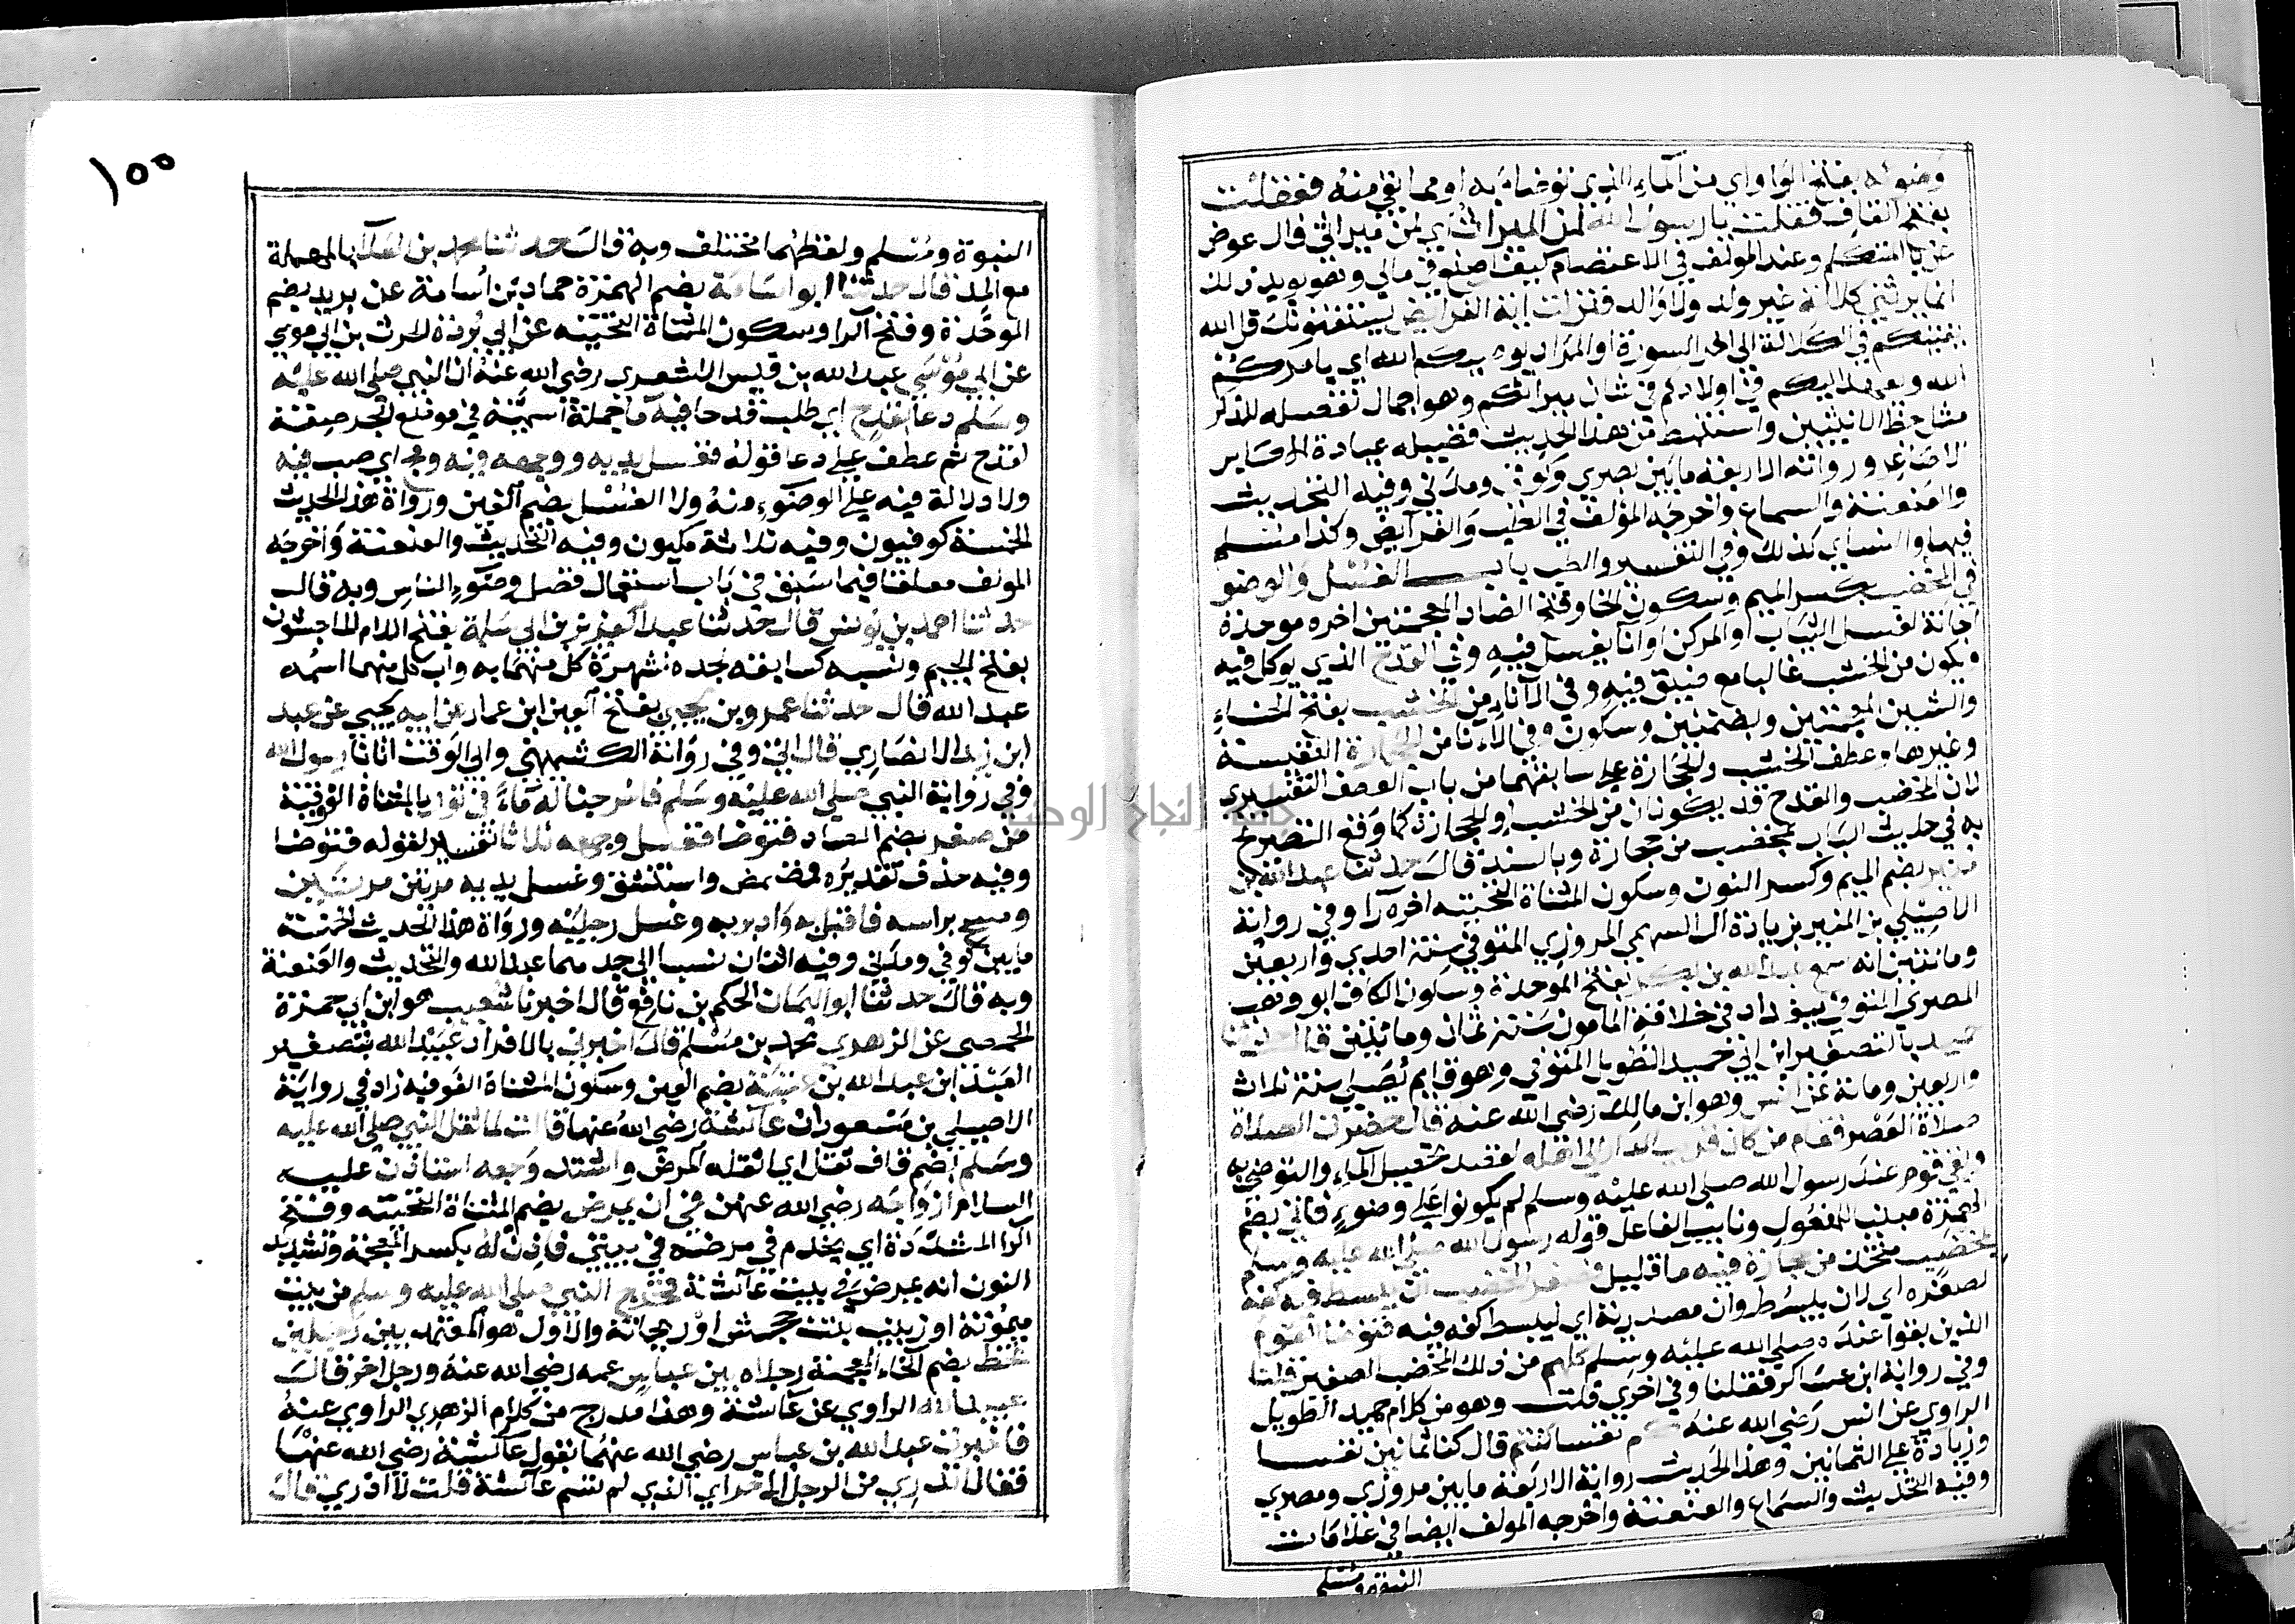 وضوئه بفتح الواو اي من الماء الذي توضاء به او مما بقي منه فعقلت
بفتح القاف فقلت يا رسول الله لمن الميراث اي لمن ميراثي فال عوض
عن يا المتكلم وعند المولف في الاعتصام كيف اصنع في مالي وهو يويد ذلك
انما يرثني كلالة غير ولد ولا والد فنزلت اية الفرايض يستفتونك قل الله
يفتيكم في الكلالة الى اخر السورة او المراد يوصيكم الله اي يامركم
الله ويعهد اليكم في اولادكم في شان ميراثكم وهو اجمال تفصيله للذكر
مثل حظ الانثيين واستنبط من هذا الحديث فضيله عيادة الاكابر
الاصاغر ورواته الاربعة ما بين بصري وكوفي ومدني وفيه التحديث
والعنعنة والسماع واخرجه المولف في الطب والفرايض وكذا مسلم
فيها والنساي كذلك وفي التفسير والطب باب الغسل والوضو
في المخضب بكسر الميم وسكون الخا وفتح الضاد المعجمتين اخره موحدة
اجانة لغسل الثياب او المركن او انا يغسل فيه وفي القدح الذي يوكل فيه
ويكون من الخشب غالبا مع ضيق فيه وفي الاناء من الخشب بفتح الخاء
والشين المعجمتين وبضمتين وسكون وفي الاناء من الحجارة النفيسة
وغيرها وعطف الخشب والحجارة على سابقهما من باب العطف التفسيري
لان المخضب والقدح قد يكونان من الخشب او الحجارة كما وقع التصريح
به في حديث الباب بمخضب من حجارة وبالسند قال حدثنا عبد الله بن
منير بضم الميم وكسر النون وسكون المثناة التحتيه اخره را وفي رواية
الاصيلي بن المنير بزيادة ال السهمي المروزي المتوفي سنة احدي واربعين
ومائتين انه سمع عبد الله بن بكر بفتح الموحدة وسكون الكاف ابو وهب
المصري المتوفي ببغداد في خلافة المامون سنة ثمان ومائتين قال حدثنا
حميد بالتصغير ابن ابي حميد الطويل المتوفي وهو قايم يصلي سنة ثلاث
واربعين ومائة عن انس وهو ابن مالك رضي الله عنه قال حضرت الصلاة
صلاة العصر فقام من كان قريب الدار الى اهله لقصد تحصيل الماء والتوضي به
وبقي قوم عند رسول الله صلي الله عليه وسلم لم يكونوا على وضوء فاتي بضم
الهمزة مبني للمفعول ونايب الفاعل قوله رسول الله صلي الله عليه وسلم
بمخضب متخذ من حجارة فيه ما قليل فصغر المخضب ان يبسط فيه كفه
لصغره اي لان يبسط وان مصدرية اي لبسط كفه فيه فتوضا القوم
الذين بقوا عنده صلي الله عليه وسلم كلهم من ذلك المخضب الصغير قلنا
وفي رواية ابن عساكر فقلنا وفي اخري قلت وهو من كلام حميد الطويل
الراوي عن انس رضي الله عنه كم نفسا كنتم قال كنا ثمانين نفسا
وزيادة علي الثمانين وهذا الحديث رواية الاربعة ما بين مروزي ومصري
وفيه التحديث والسماع والعنعنة واخرجه المولف ايضا في علامات
النبوة ومسلم
١٥٥
النبوة ومسلم ولفظهما مختلف وبه قال حدثنا محمد بن العلا بالمهملة
مع المد قال حدثنا ابو اسامة بضم الهمزة حماد بن أسامة عن بريد بضم
الموحدة وفتح الرا وسكون المثناة التحتيه عن ابي بردة الحرث بن ابي موسي
عن ابي موسي عبد الله بن قيس الاشعري رضي الله عنه ان النبي صلي الله عليه
وسلم دعا بقدح اي طلب قدحا فيه ما جملة اسمية في موضع الجر صفة
لقدح ثم عطف علي دعا قوله فغسل يديه ووجهه فيه ومج اي صب فيه
ولا دلالة فيه علي الوضوء منه ولا الغسل بضم الغين ورواة هذا الحديث
الخمسة كوفيون وفيه ثلاثة مكيون وفيه التحديث والعنعنة واخرجه
المولف معلقا فيما سبق في باب استعمال فضل وضوء الناس وبه قال
حدثنا احمد بن يونس قال حدثنا عبد العزيز بن ابي سلمة بفتح اللام الماجشون
بفتح الجيم ونسبه كسابقه لجده لشهرة كل منهما به واب كل منهما اسمه
عبد الله قال حدثنا عمرو بن يحيي بفتح العين ابن عمار عن ابيه يحيي عن عبد
ابن زيد الانصاري قال اتي وفي رواية الكشميهني وابي الوقت اتانا رسول الله
وفي رواية النبي صلي الله عليه وسلم فاخرجنا له ماء في تور بالمثناة الفوقية
من صفر بضم الصاد فتوضا فغسل وجهه ثلاثا تفسير لقوله فتوضا
وفيه حذف تقديره فمضمض واستنشق وغسل يديه مرتين مرتين
ومسح براسه فاقبل به وادبر به وغسل رجليه ورواة هذا الحديث الخمسة
ما بين كوفي ومدني وفيه اثنان نسبا الي جدهما عبد الله والتحديث والعنعنة
وبه قال حدثنا ابو اليمان الحكم بن نافع قال اخبرنا شعيب هو ابن ابي حمزة
الحمصي عن الزهري محمد بن مسلم قال اخبرني بالافراد عبيد الله بتصغير
العبد ابن عبد الله بن عتبة بضم العين وسكون المثناة الفوقيه زاد في رواية
الاصيلي بن مسعود ان عائشة رضي الله عنها قالت لما ثقل النبي صلي الله عليه
وسلم بضم قاف ثقل اي اثقله المرض واشتد وجعه استاذن عليه
السلام ازواجه رضي الله عنهن في ان يمرض بضم المثناة التحتيه وفتح
الرا المشددة اي يخدم في مرضه في بيتي فاذن له بكسر المعجمة وتشديد
النون انه يمرض في بيت عائشة فخرج النبي صلي الله عليه وسلم من بيت
ميمونة او زينب بنت جحش او ريحانة والاول هو المعتمد بين رجلين
تخط بضم الخاء المعجمة رجلاه بين عباس عمه رضي الله عنه ورجل اخر قال
عبيد الله الراوي عن عائشة وهذا مدرج من كلام الزهري الراوي عنه
فاخبرت عبد الله بن عباس رضي الله عنهما بقول عائشة رضي الله عنها
فقال اتدري من الرجل الاخر اي الذي لم تسم عائشة قلت لا ادري قال